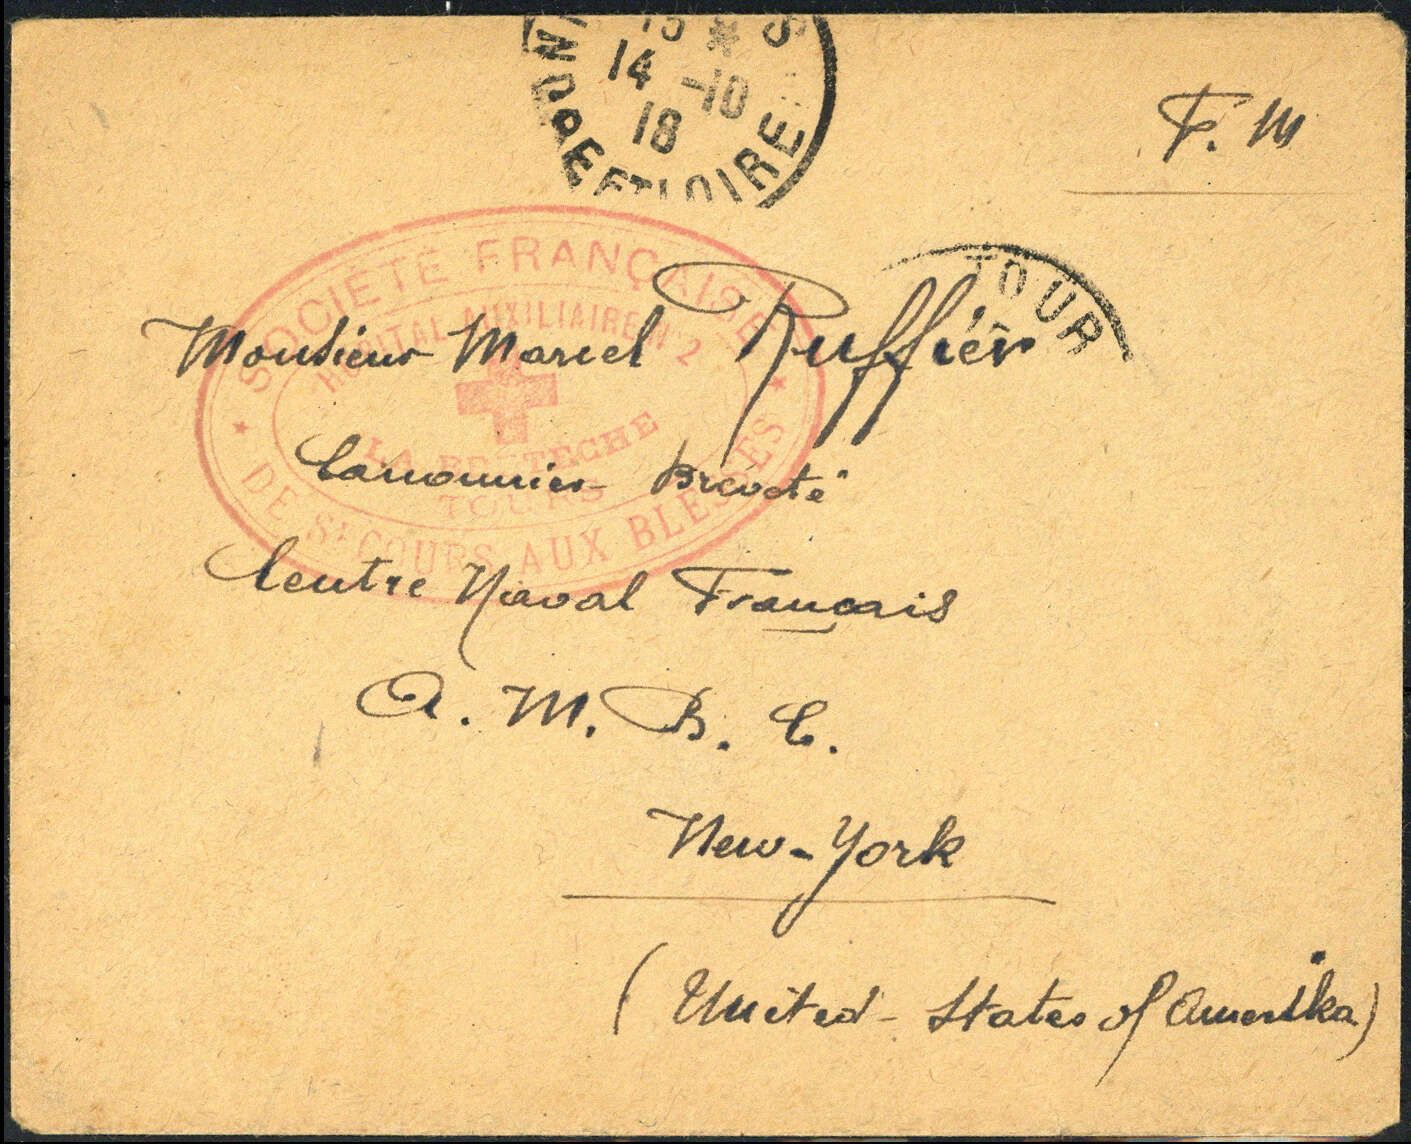 15 * S
14 -10
18
INDRE ET LOIRE
F. M
TOUR
SOCIÉTÉ FRANÇAISE
HOPITAL AUXILIAIRE N° 2
LA BRETECHE
TOURS
DE SECOURS AUX BLESSÉS
Monsieur Marcel Ruffier
Canonnier Breveté
Centre Naval Français
A. M. B. C.
New-York
(United-States of Amerika)